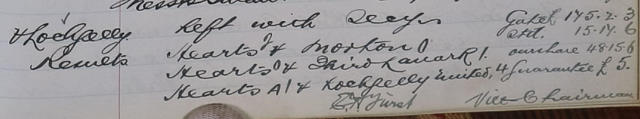 left with Secy
& Lochgelly
Results
Hearts & Morton 0
Hearts 0 & Third Lanark 1.
Hearts A 1 & Lochgelly United, 4
Gate £ 175.2.3
Std. 15.14.6
our share 48.15.6
Guarantee £5.
E. H. Furst
Vice Chairman